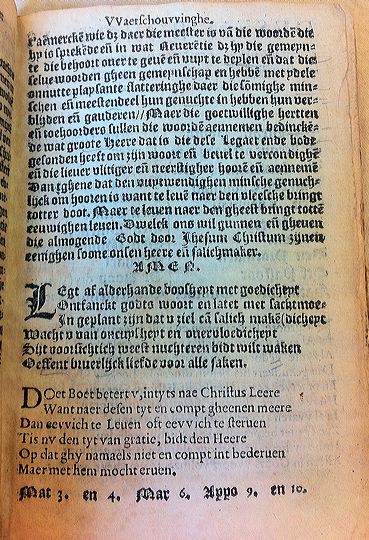 VVaerschouvvinghe.
Eañmerckē wie dz daer die meester is vā die woordē die
hy is sprekēde eñ in wat Reuerētie dz hy die gemeyn-
te die behoort oner te geuē eñ vuyt te deylen eñ dat die
selue woorden gheen gemeynschap en hebbē met ydele
onnutte playsante flatteringhe daer die sōmighe min-
schen eñ meestendeel hun genuchte in hebben hun ver-
blyden eñ gauderen// Maer die goetwillighe hertten
eñ toehoorders sullen die woordē aennemen bedinckē-
de wat groote Heere dat is die dese Legaet ende bode
gesonden heeft om zijn woort eñ beuel te vercondighē
eñ die lieuer vlitiger eñ neerstigher hoorē eñ aennemē
Dan ghene dat den vuytwendighen minsche genuch-
lijck om hooren is want te leuē naer den vleesche bringt
totter doot. Maer te leuen naer den gheest bringt tottē
eeuwighen leuen. Dwelck ons wil gunnen eñ gheuen
die almogende Godt door Jhesum Christum zijnen
eenighen soone onsen heere eñ salichmaker.
AMEN.
LEgt af alderhande boosheyt met goedicheyt
Ontfanckt godts woort en latet met sachtmoe-
In geplant zijn dat v ziel cā salich makē (dicheyt
Wacht v van oncuysheyt en overvloedicheyt
Sijt voorsichtich weest nuchteren bidt wilt waken
Oeffent bruerlijck liefde voor alle saken.
DOet Boet betert v, intyts nae Christus Leere
Want naer desen tyt en compt gheenen meere
Dan eevvich te Leuen oft eevvich te steruen
Tis nv den tyt van gratie, bidt den Heere
Op dat ghy namaels niet en compt int bederuen
Maer met hem mocht eruen.
Mat 3. en 4. Mar 6. Appo 9. en 10.